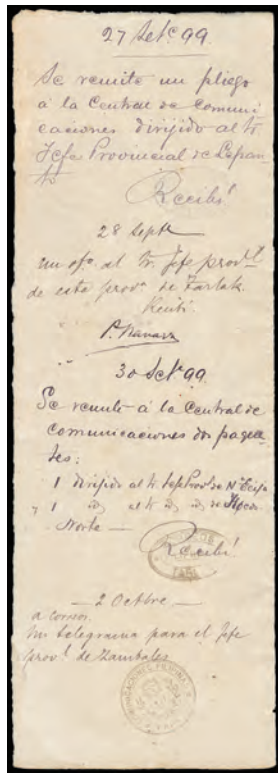 27 Setᵉ 99
Se remite un pliego
á la Central de Comuni
caciones dirijido al Sr
Jefe Provincial de Lepan
to
Recibí
28 Septe
un ofº al Sr. Jefe provˡ
de esta provª de Tarlak.
Recibí
P. Navarro
30 Setᵉ 99
Se remite á la Central de
comunicaciones dos paque
tes:
1 dirijido al Sr Jefe Provˡ de Nª Ecija
y 1 id al Sr id id de Ilocos
Norte —
Recibí
— 2 Octbre —
a correos.
un telegrama para el Jefe
provˡ de Zambales
COMUNICACIONES